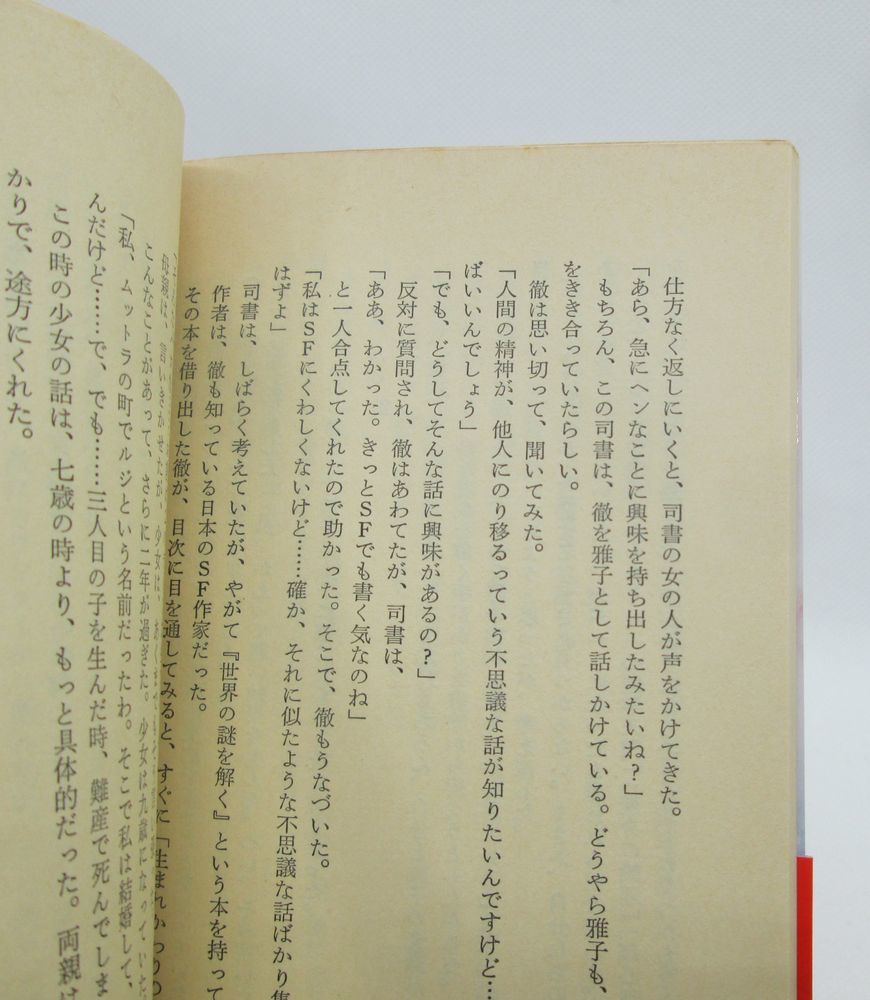 仕方なく返しにいくと、司書の女の人が声をかけてきた。
「あら、急にヘンなことに興味を持ち出したみたいね？」
もちろん、この司書は、徹を雅子として話しかけている。どうやら雅子も、
をきき合っていたらしい。
徹は思い切って、聞いてみた。
「人間の精神が、他人にのり移るっていう不思議な話が知りたいんですけど…
ばいいんでしょう」
「でも、どうしてそんな話に興味があるの？」
反対に質問され、徹はあわてたが、司書は、
「ああ、わかった。きっとＳＦでも書く気なのね」
と一人合点してくれたので助かった。そこで、徹もうなづいた。
「私はＳＦにくわしくないけど……確か、それに似たような不思議な話ばかり集
はずよ」
司書は、しばらく考えていたが、やがて『世界の謎を解く』という本を持って
作者は、徹も知っている日本のＳＦ作家だった。
その本を借り出した徹が、目次に目を通してみると、すぐに「生まれかわりの
母親は、言いきかせたが、少女は、
こんなことがあって、さらに二年が過ぎた。少女は九歳になっていた
「私、ムットラの町でルジという名前だったわ。そこで私は結婚して、
んだけど……で、でも……三人目の子を生んだ時、難産で死んでしま
この時の少女の話は、七歳の時より、もっと具体的だった。両親は
かりで、途方にくれた。